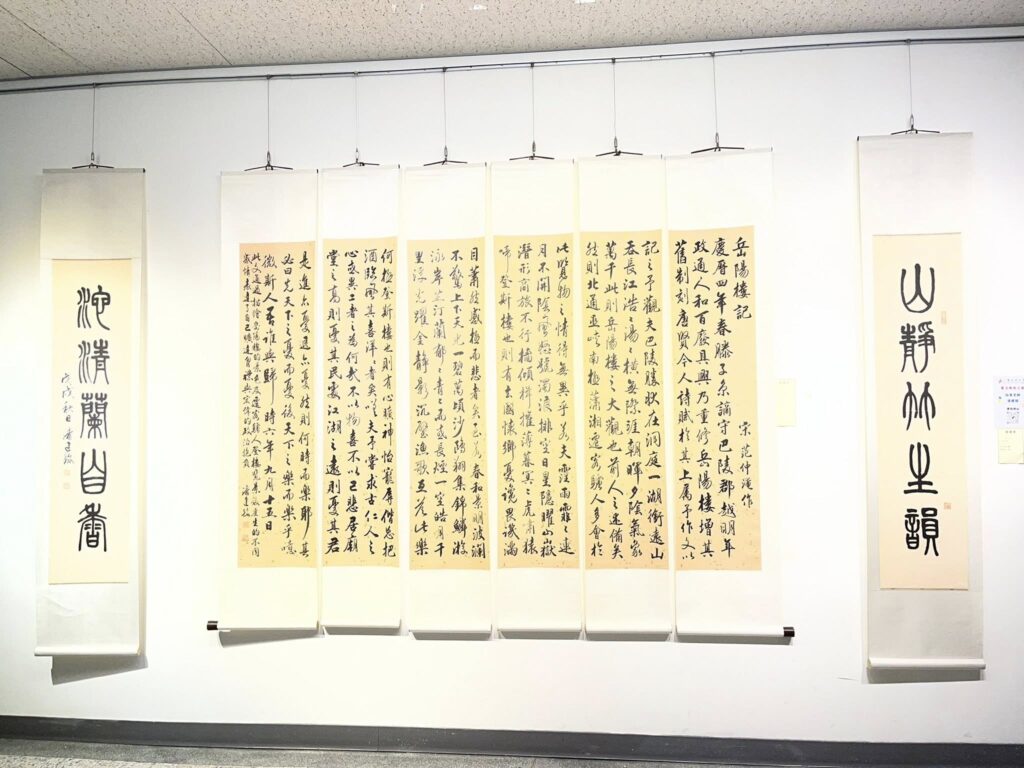 山靜竹生韻
岳陽樓記
宋 范仲淹作
慶曆四年春滕子京謫守巴陵郡越明年
政通人和百廢具興乃重修岳陽樓增其
舊制刻唐賢今人詩賦於其上屬予作文以
記之予觀夫巴陵勝狀在洞庭一湖銜遠山
吞長江浩々湯々橫無際涯朝暉夕陰氣象
萬千此則岳陽樓之大觀也前人之述備矣
然則北通巫峽南極瀟湘遷客騷人多會於
此覽物之情得無異乎若夫霪雨霏々連
月不開陰風怒號濁浪排空日星隱曜山嶽
潛形商旅不行檣傾楫摧薄暮冥々虎嘯猿
啼登斯樓也則有去國懷鄉憂讒畏譏滿
目蕭然感極而悲者矣至若春和景明波瀾
不驚上下天光一碧萬頃沙鷗翔集錦鱗游
泳岸芷汀蘭郁々青々而或長煙一空皓月千
里浮光躍金靜影沉璧漁歌互答此樂
何極登斯樓也則有心曠神怡寵辱偕忘把
酒臨風其喜洋々者矣嗟夫予嘗求古仁人之
心或異二者之為何哉不以物喜不以己悲居廟
堂之高則憂其民處江湖之遠則憂其君
是進亦憂退亦憂然則何時而樂耶其
必曰先天下之憂而憂後天下之樂而樂乎噫
微斯人吾誰與歸時六年九月十五日
此文通過描繪岳陽樓的景色及遷客騷人登樓覽景後產生的不同
感情表達了自己
的政治抱負
池清蘭自香
戊戌秋日